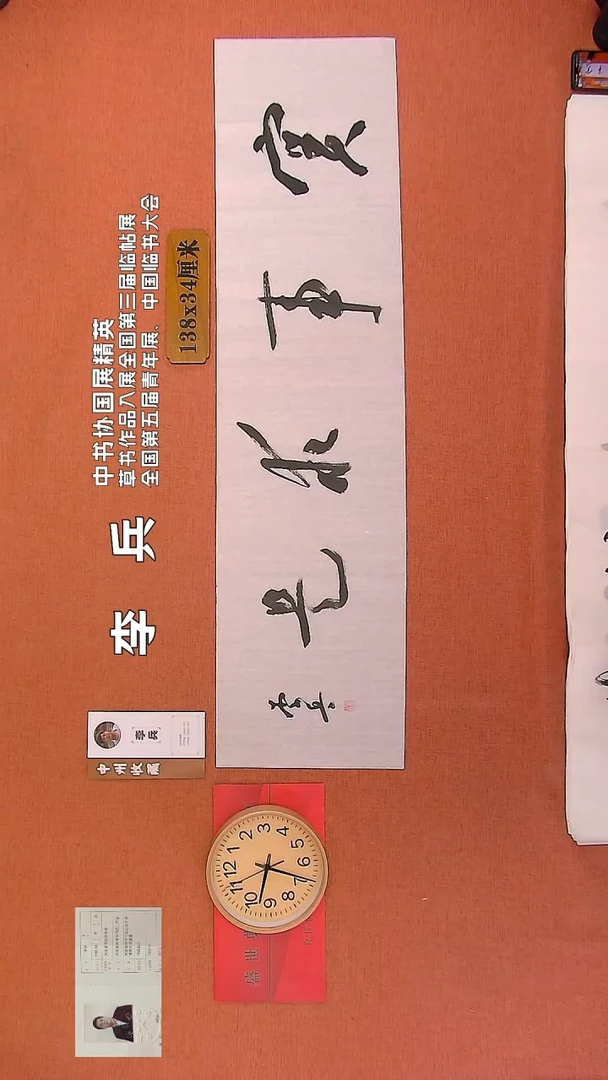 实事求是
138x34厘米
中书协国展精英
草书作品入展全国第三届临帖展
全国第五届青年展、中国临书大会
李兵
李兵
中州收藏
盛世
12
1
2
3
4
5
6
7
8
9
10
11